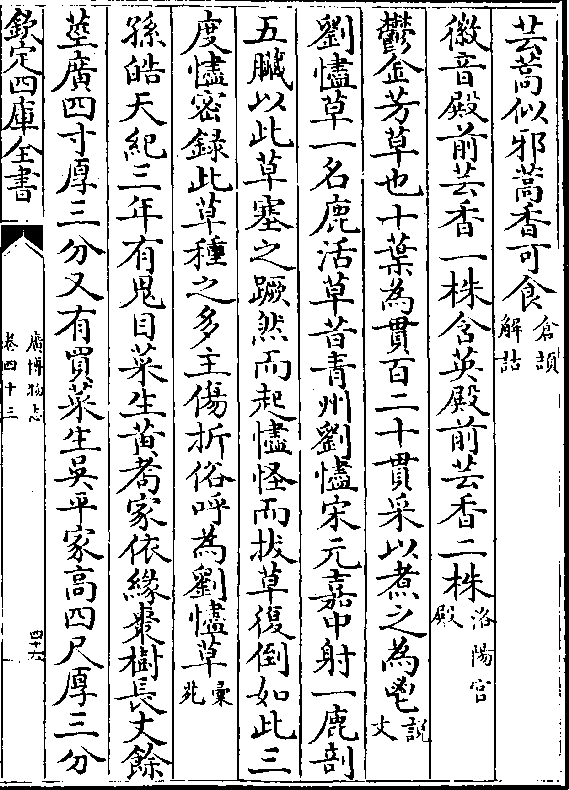 芸蒿似邪蒿香可食倉頡解詁
徽音殿前芸香一株含英殿前芸香二株洛陽宮殿
鬱金芳草也十葉為貫百二十貫采以煮之為鬯說文
劉㦗草一名鹿活草昔青州劉㦗宋元嘉中射一鹿剖
五臟以此草塞之蹶然而起㦗怪而拔草復倒如此三
度㦗密録此草種之多主傷折俗呼為劉㦗草彙苑
孫皓天紀三年有鬼目菜生黄耇家依緣棗樹長丈餘
莖廣四寸厚三分又有買菜生吳平家高四尺厚三分
欽定四庫全書
廣博物志
卷四十三
四十六